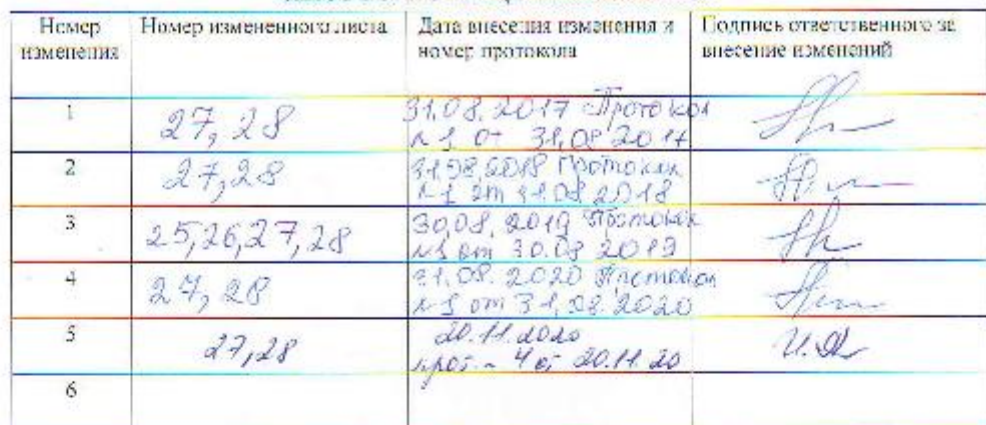 Номер изменения Номер измененного листа Дата внесения изменения и номер протокола Подпись ответственного за внесение изменений
1 27, 28 31.08.2017 Протокол
№1 от 31.08.2017
2 27,28 31.08.2018 Протокол
№1 от 31.08.2018
3 25,26,27,28 30.08.2019 Протокол
№1 от 30.08.2019
4 27, 28 31.08.2020 Протокол
№1 от 31.08.2020
5 27,28 20.11.2020
прот. № 4 от 20.11.20
6